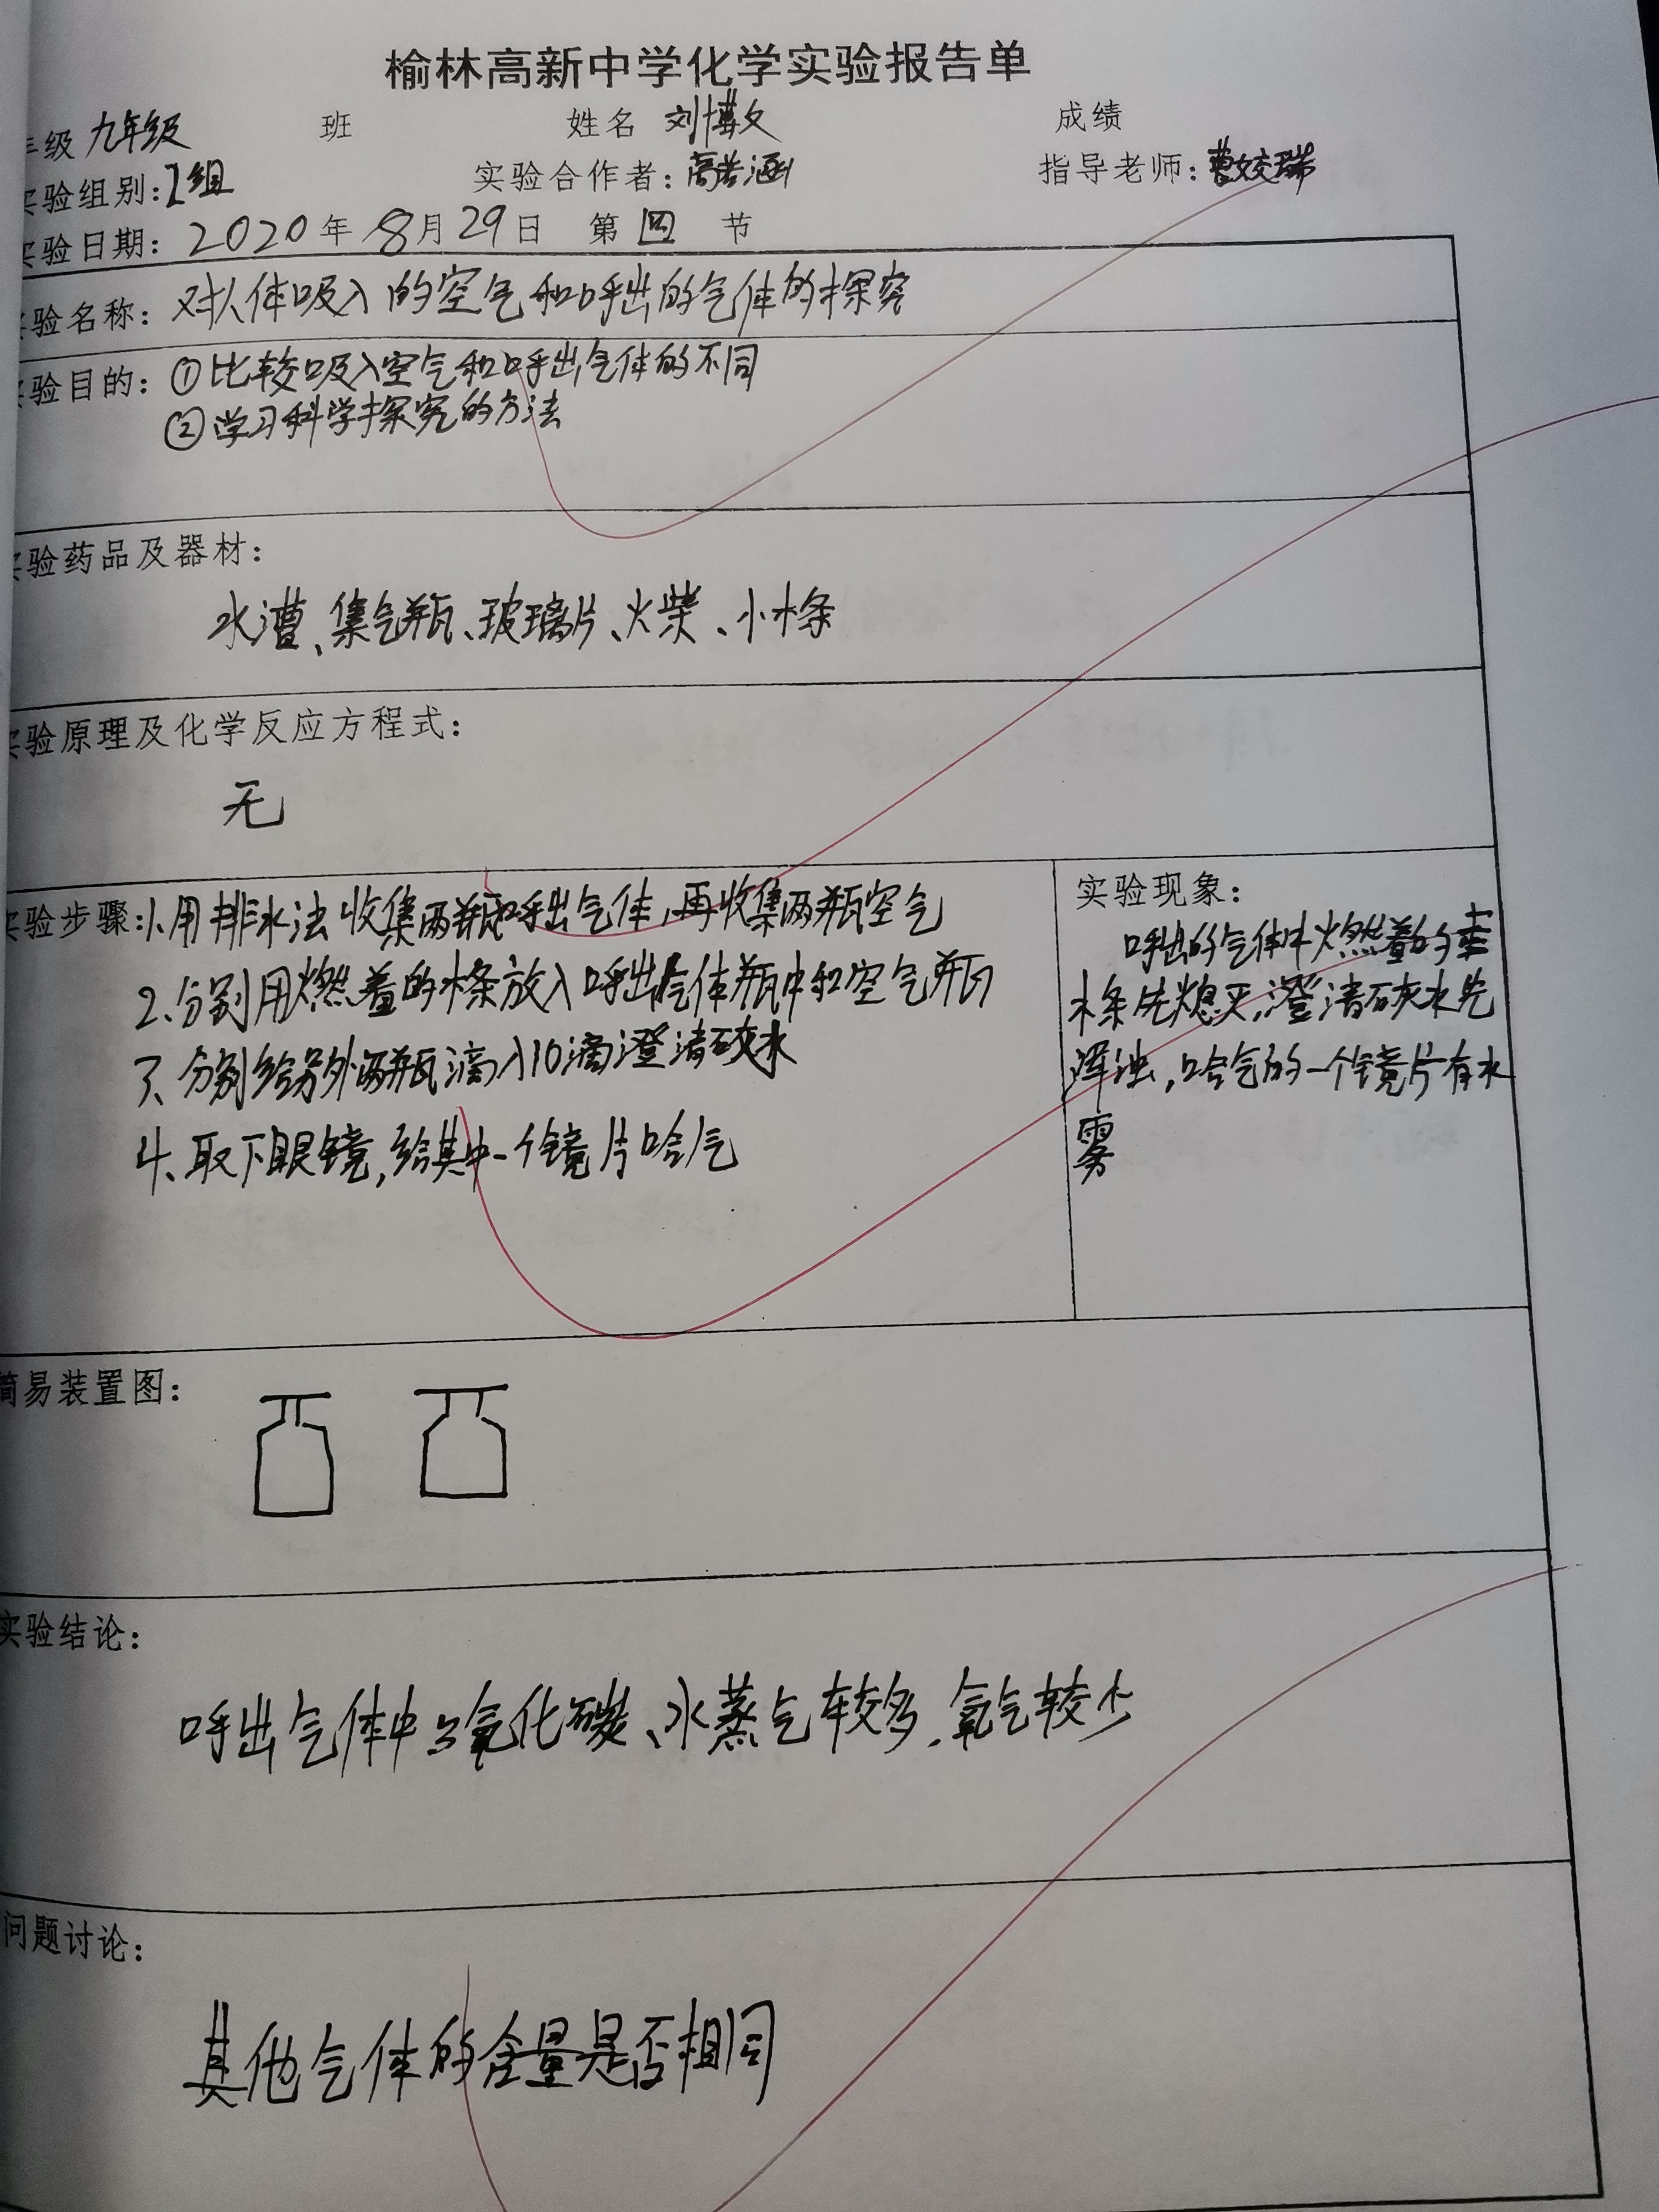 榆林高新中学化学实验报告单
年级 九年级 班 姓名 刘博文 成绩
实验组别: 2组 实验合作者: 高若涵 指导老师:
实验日期: 2020年 8月29日 第 四 节
实验名称: 对人体吸入的空气和呼出的气体的探究
实验目的: ①比较吸入空气和呼出气体的不同
②学习科学探究的方法
实验药品及器材:
水漕、集气瓶、玻璃片、火柴、小木条
实验原理及化学反应方程式:
无
实验步骤: 1、用排水法收集两瓶呼出气体,再收集两瓶空气
2、分别用燃着的木条放入呼出气体瓶中和空气瓶
3、分别给另外两瓶滴入10滴澄清石灰水
4、取下眼镜,给其中一个镜片哈气
实验现象:
呼出的气体中燃着的
木条先熄灭,澄清石灰水先
浑浊,哈气的一个镜片有水
雾
简易装置图:
实验结论:
呼出气体中二氧化碳、水蒸气较多,氧气较少
问题讨论:
其他气体的含量是否相同